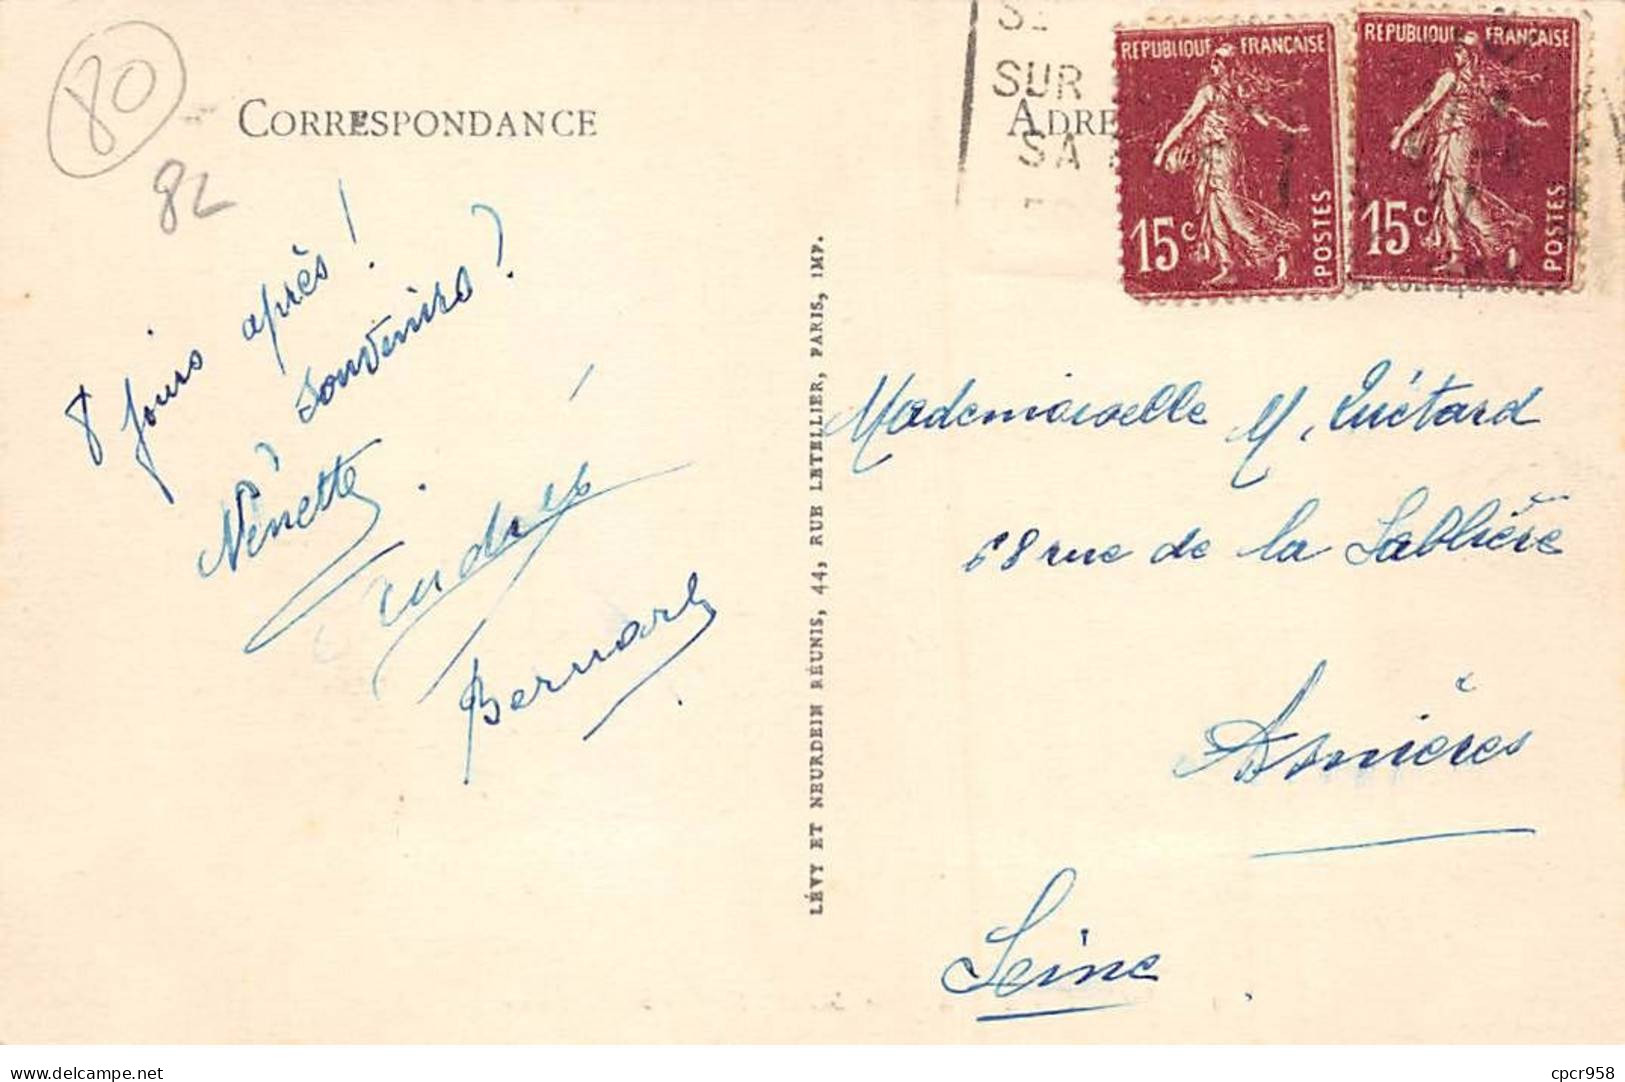 80
82
CORRESPONDANCE
8 jours après!
Souvenirs?
Nénette.
Andrée
Bernard
LÉVY ET NEURDEIN RÉUNIS, 44, RUE LETELLIER, PARIS, IMP.
SUR
ADRE
SA
REPUBLIQUE FRANÇAISE
15c
POSTES
REPUBLIQUE FRANÇAISE
15c
POSTES
Mademoiselle M. Quétard
68 rue de la Sablière
Asnières
Seine
cpcr958
delcampe.net